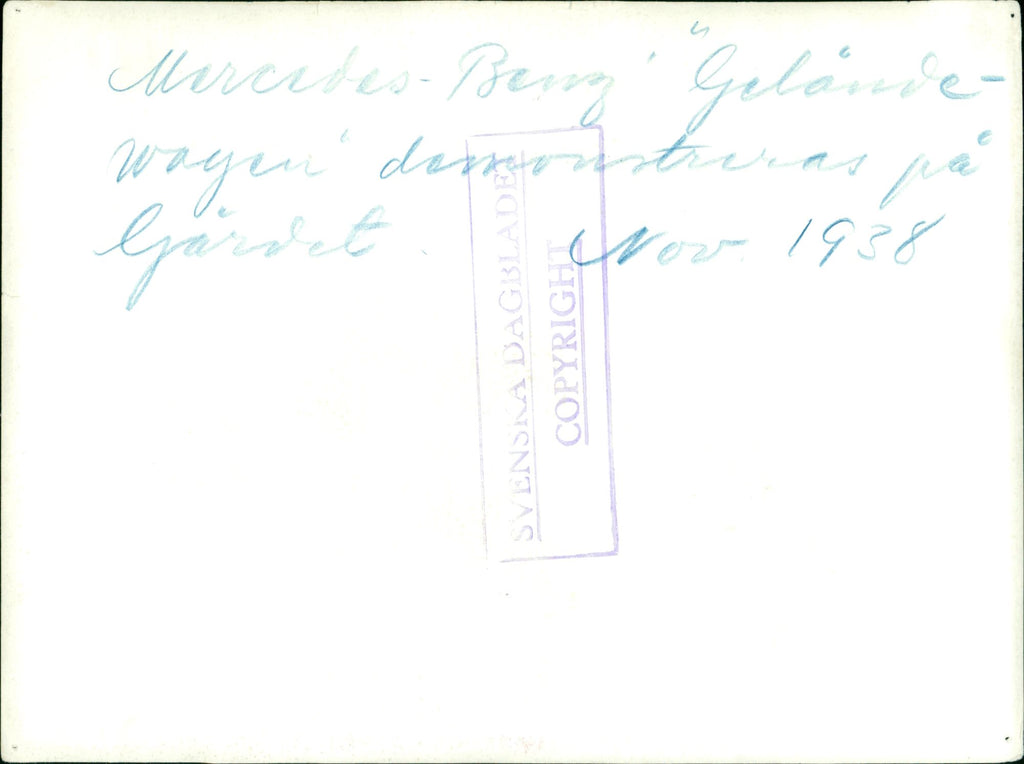 Mercedes-Benz' "Gelände-
wagen" demonstreras på
Gärdet. Nov. 1938
SVENSKA DAGBLADET
COPYRIGHT